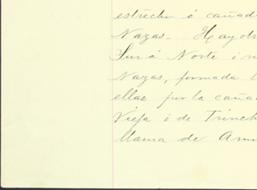 estrecho ó cañad
Nazas. Hay d
Sur á Norte i
Nazas, formada
ellas por la caña
Vieja i de Trinch
llama de